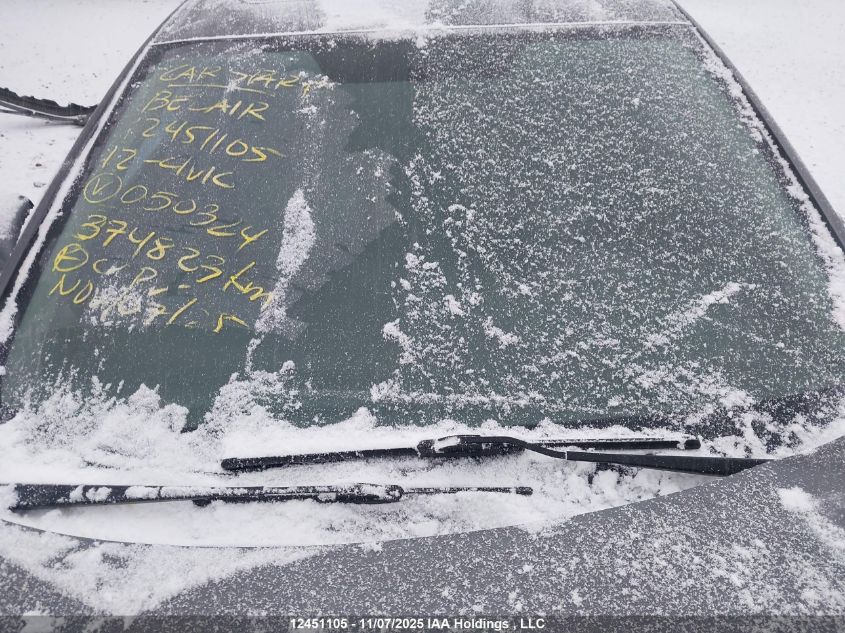 BELAIR
12451105
12-CIVIC
Ⓥ050364
374823 km
NOV/07/25
12451105 - 11/07/2025 IAA Holdings , LLC